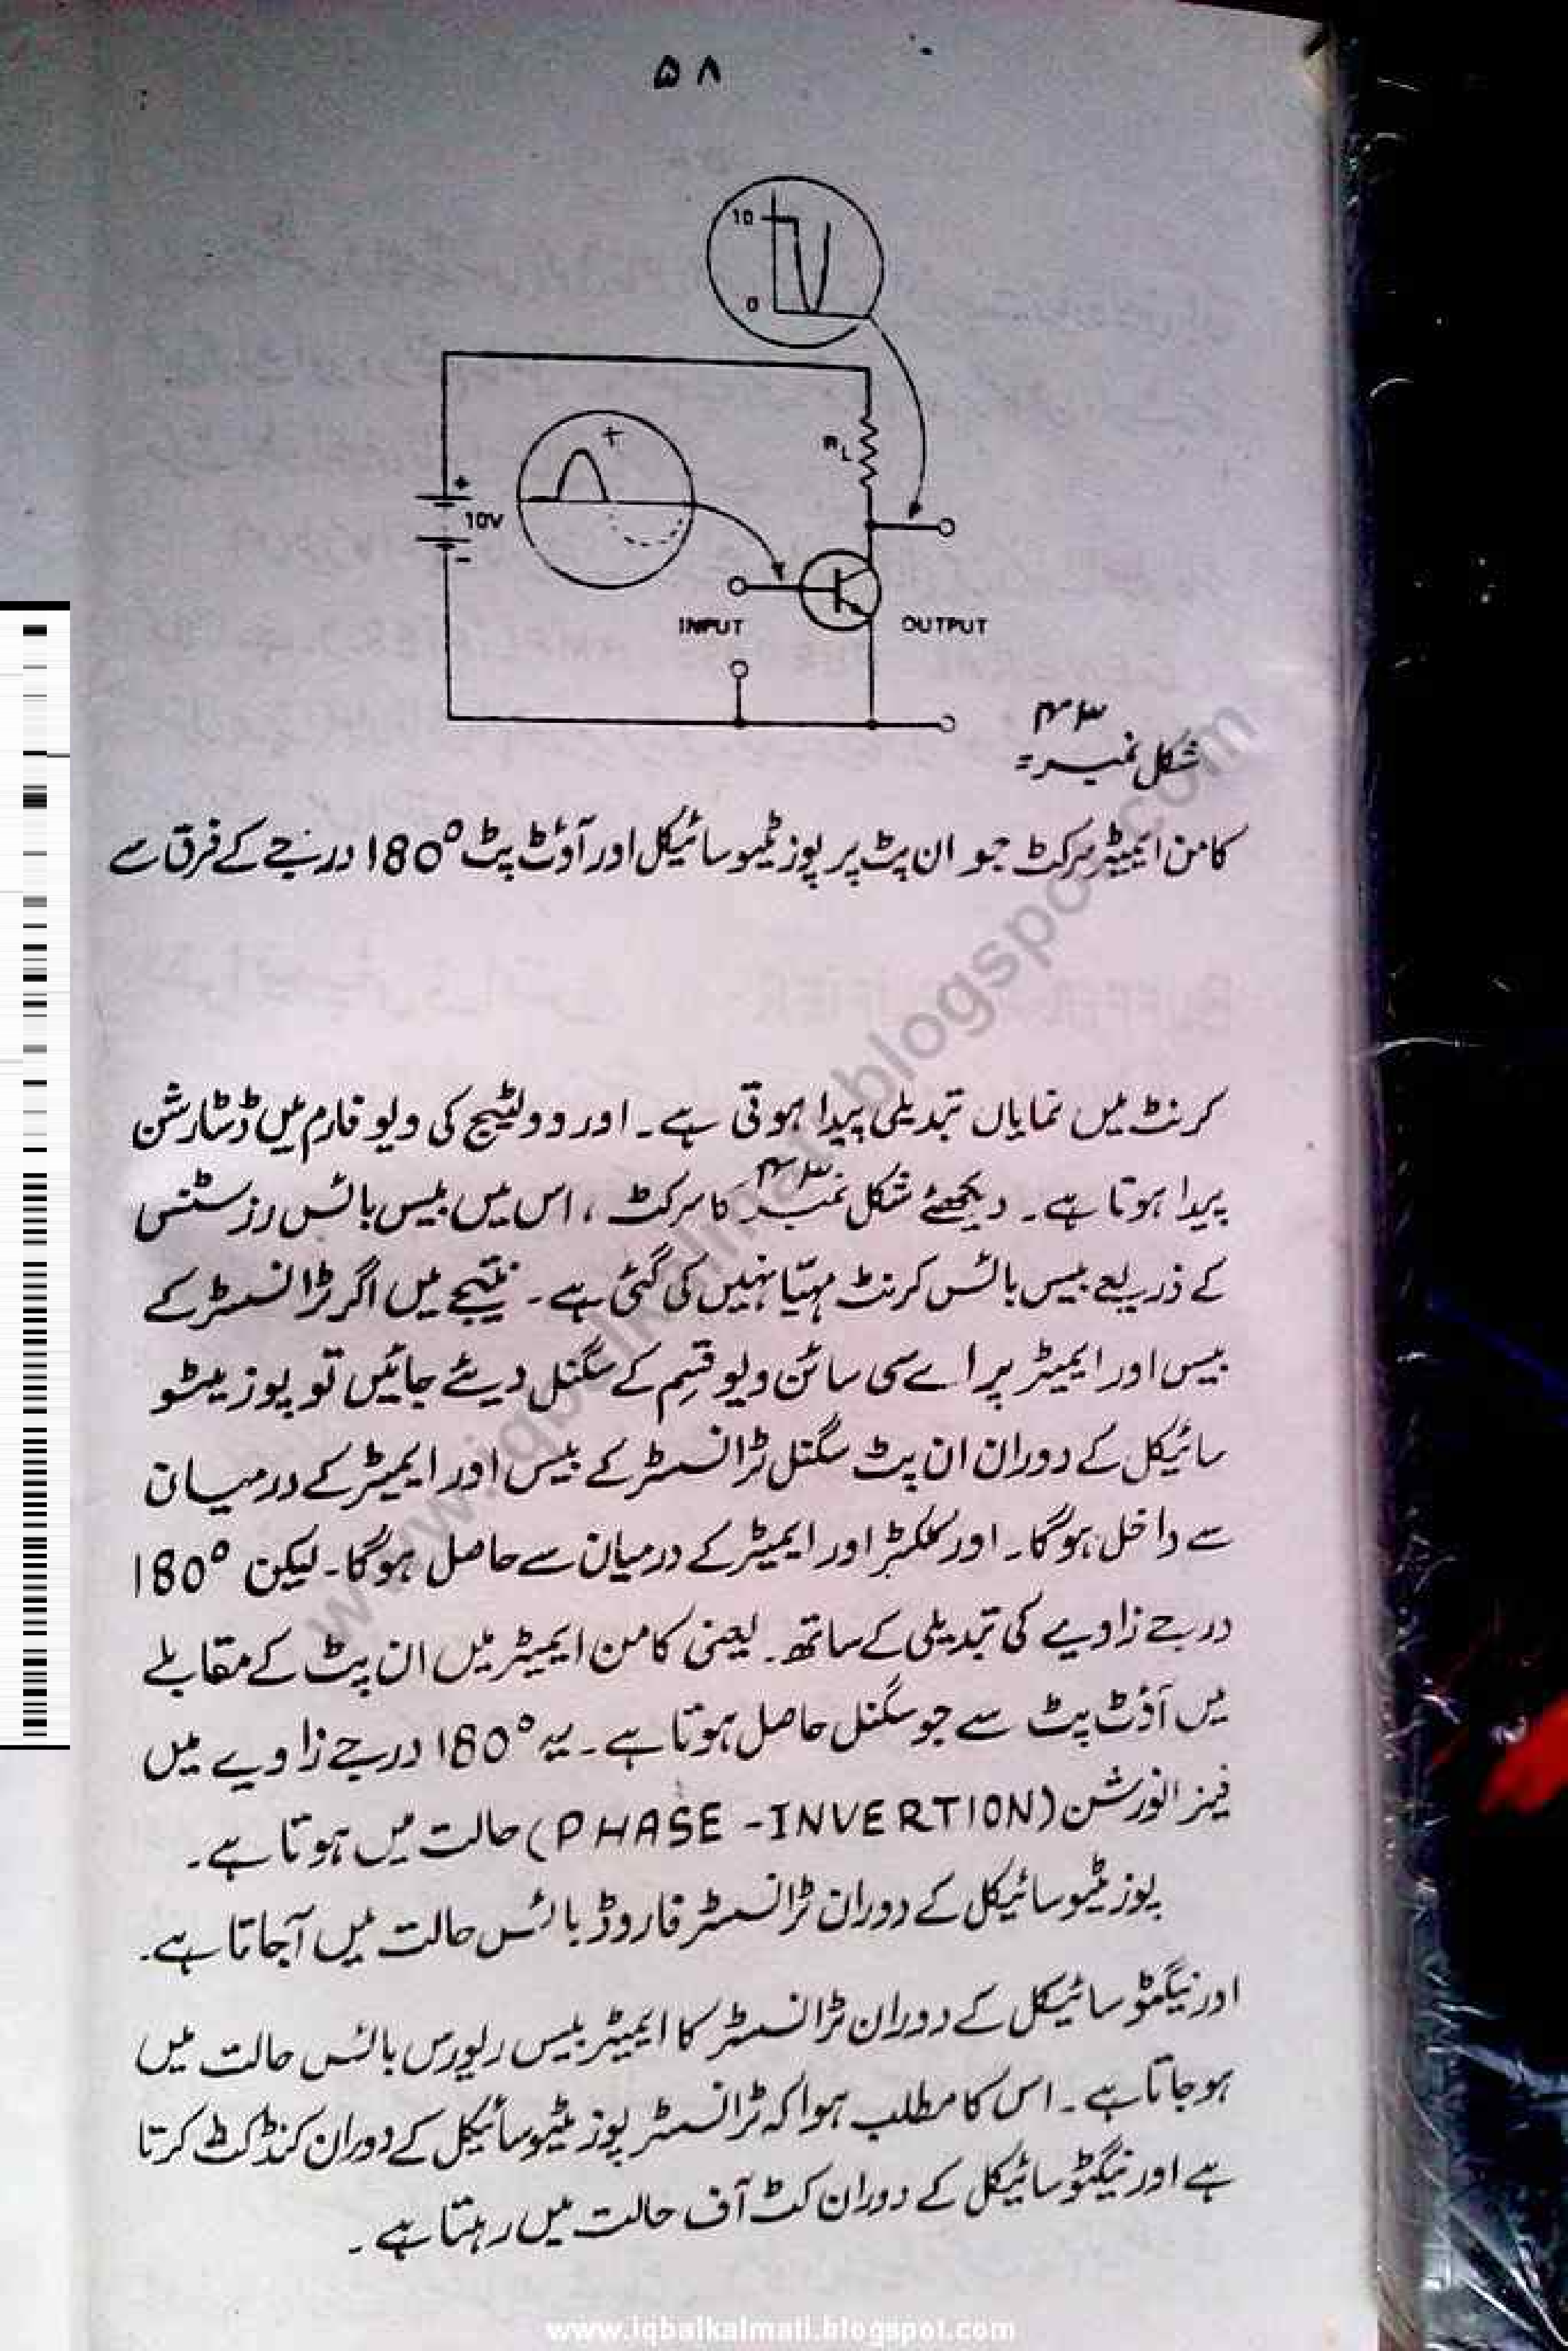 ۵۸
10
0
+
RL
+
10V
-
INPUT
OUTPUT
۴۳
شکل نمبر =
کامن ایمیٹر سرکٹ جو ان پٹ پر پوزیٹیو سائیکل اور آؤٹ پٹ 180° درجے کے فرق سے
کرنٹ میں نمایاں تبدیلی پیدا ہوتی ہے۔ اور وولٹیج کی ویو فارم میں ڈسٹارشن
پیدا ہوتا ہے۔ دیکھئے شکل نمبر ۴۳ کا سرکٹ ، اس میں بیس بائس رزسٹنس
کے ذریعے بیس بائس کرنٹ مہیّا نہیں کی گئی ہے۔ نتیجے میں اگر ٹرانسسٹر کے
بیس اور ایمیٹر پر اے سی سائن ویو قسم کے سگنل دیئے جائیں تو پوزیٹو
سائیکل کے دوران ان پٹ سگنل ٹرانسسٹر کے بیس اور ایمیٹر کے درمیان
سے داخل ہوگا۔ اور کلکٹر اور ایمیٹر کے درمیان سے حاصل ہوگا۔ لیکن 180°
درجے زاویے کی تبدیلی کے ساتھ۔ یعنی کامن ایمیٹر میں ان پٹ کے مقابلے
میں آؤٹ پٹ سے جو سگنل حاصل ہوتا ہے۔ یہ 180° درجے زاویے میں
فیز انورشن (PHASE - INVERTION) حالت میں ہوتا ہے۔
پوزیٹیو سائیکل کے دوران ٹرانسسٹر فارورڈ بائس حالت میں آجاتا ہے۔
اور نیگیٹو سائیکل کے دوران ٹرانسسٹر کا ایمیٹر بیس ریورس بائس حالت میں
ہوجاتا ہے۔ اس کا مطلب ہوا کہ ٹرانسسٹر پوزیٹیو سائیکل کے دوران کنڈکٹ کرتا
ہے اور نیگیٹو سائیکل کے دوران کٹ آف حالت میں رہتا ہے۔
www.iqbalkalmati.blogspot.com
www.iqbalkalmati.blogspot.com